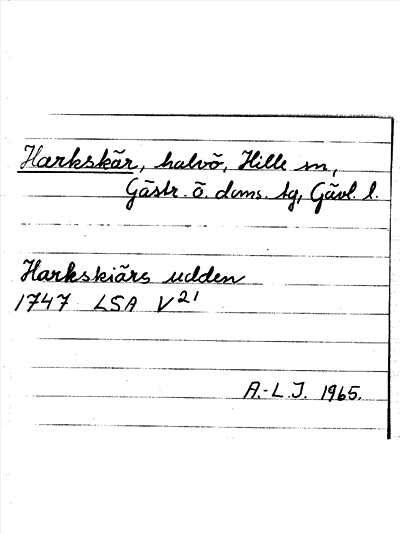 Harkskär, halvö, Hille sn,
Gästr. ö. doms. tg, Gävl. l.
Harkskiärs udden
1747 LSA V21
A.-L.J. 1965.